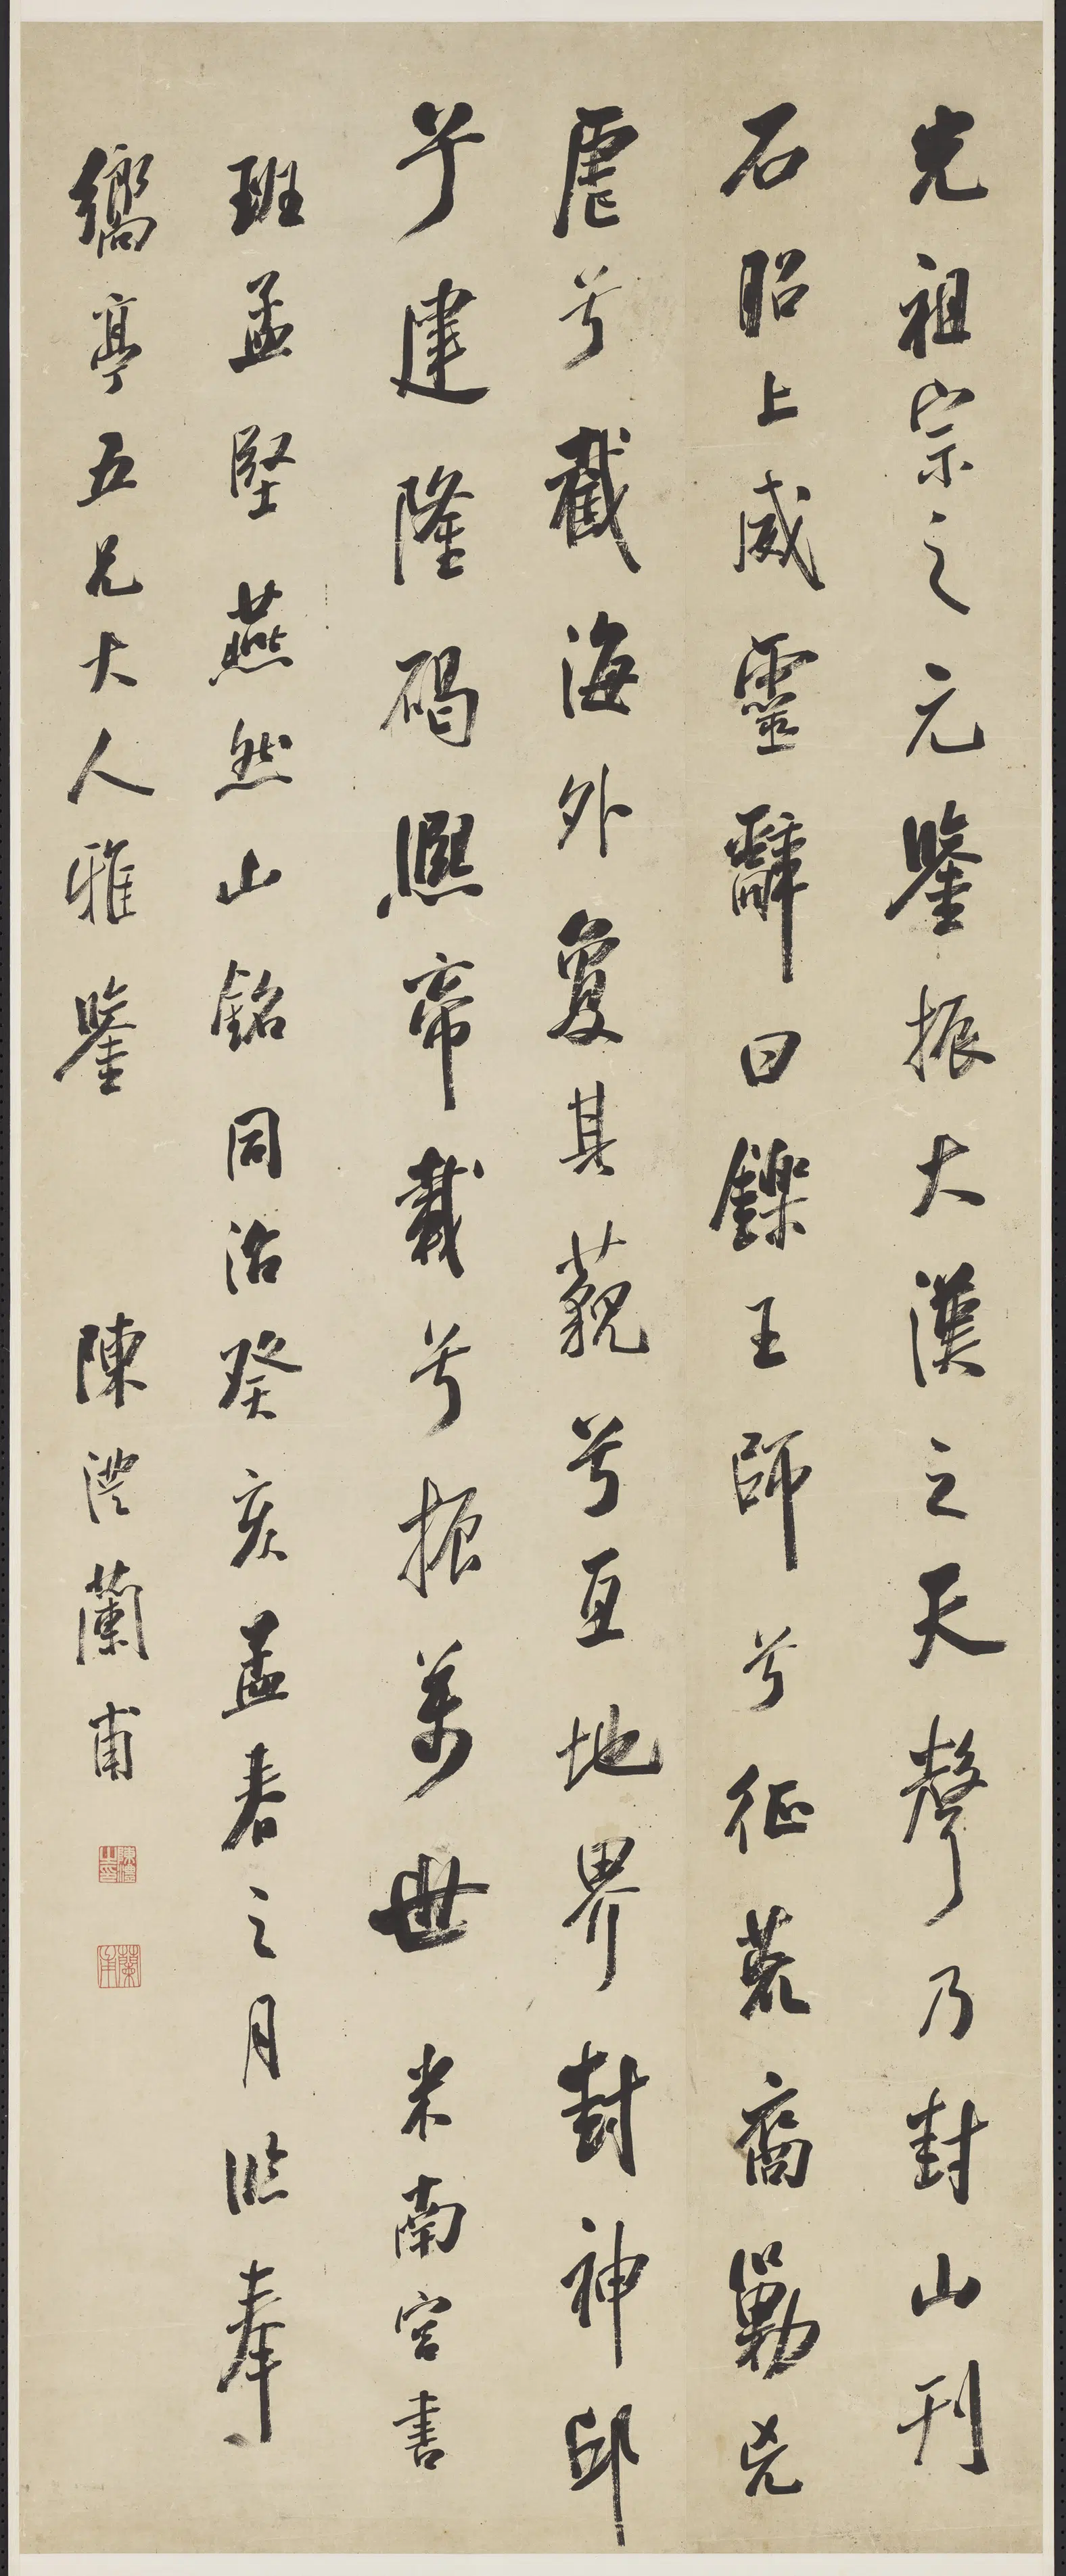 光祖宗之元鑒振大漢之天聲乃封山刊
石昭上威靈辭曰鑠王師兮征荒裔勦凶
虐兮截海外夐其藐兮亙地界封神邱
兮建隆碣熙帝載兮振萬世 米南宮書
班孟堅燕然山銘同治癸亥孟春之月臨奉
蠁亭五兄大人雅鑒 陳澧蘭甫
陳澧之印
蘭甫